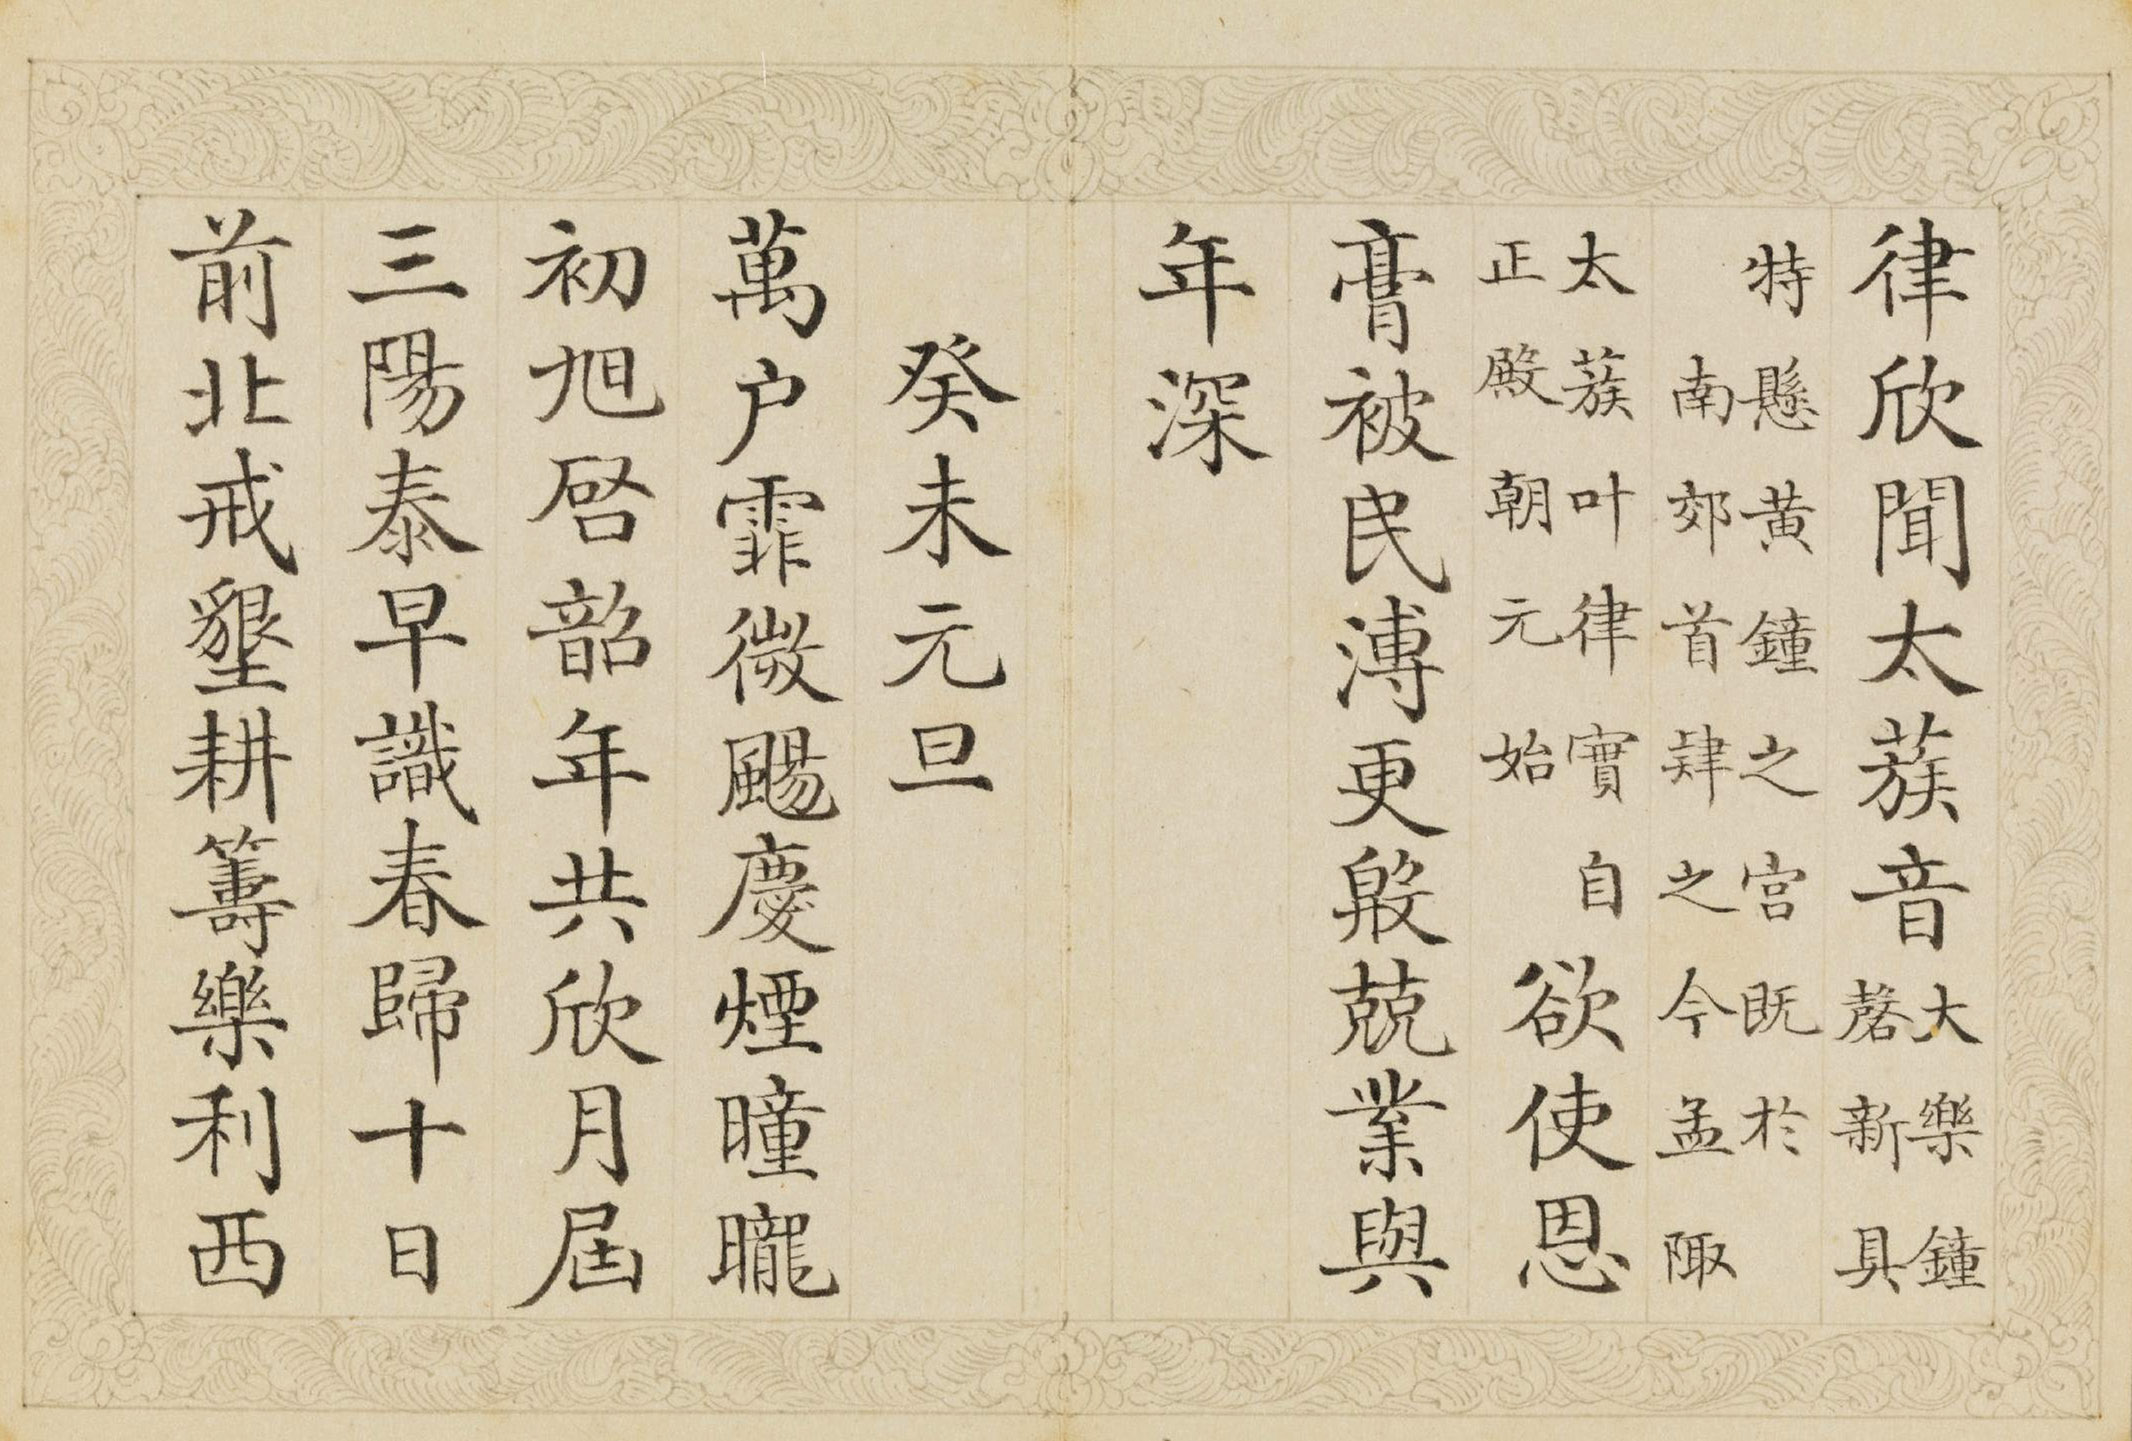 律欣聞太蔟音大樂鐘
磬新具
特懸黄鐘之宫既於
南郊首肆之今孟陬
太蔟叶律實自
正殿朝元始
欲使恩
膏被民溥更殷兢業與
年深
癸未元旦
萬户霏微颺慶煙曈曨
初旭啓韶年共欣月屆
三陽泰早識春歸十日
前北戒墾耕籌樂利西